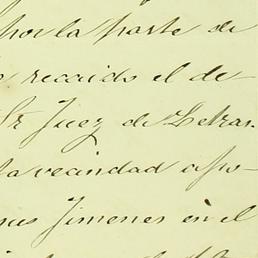 por la parte de
recaido el de-
Sr Juez de Letras.
la vecindad apo-
nus Jimenes en el